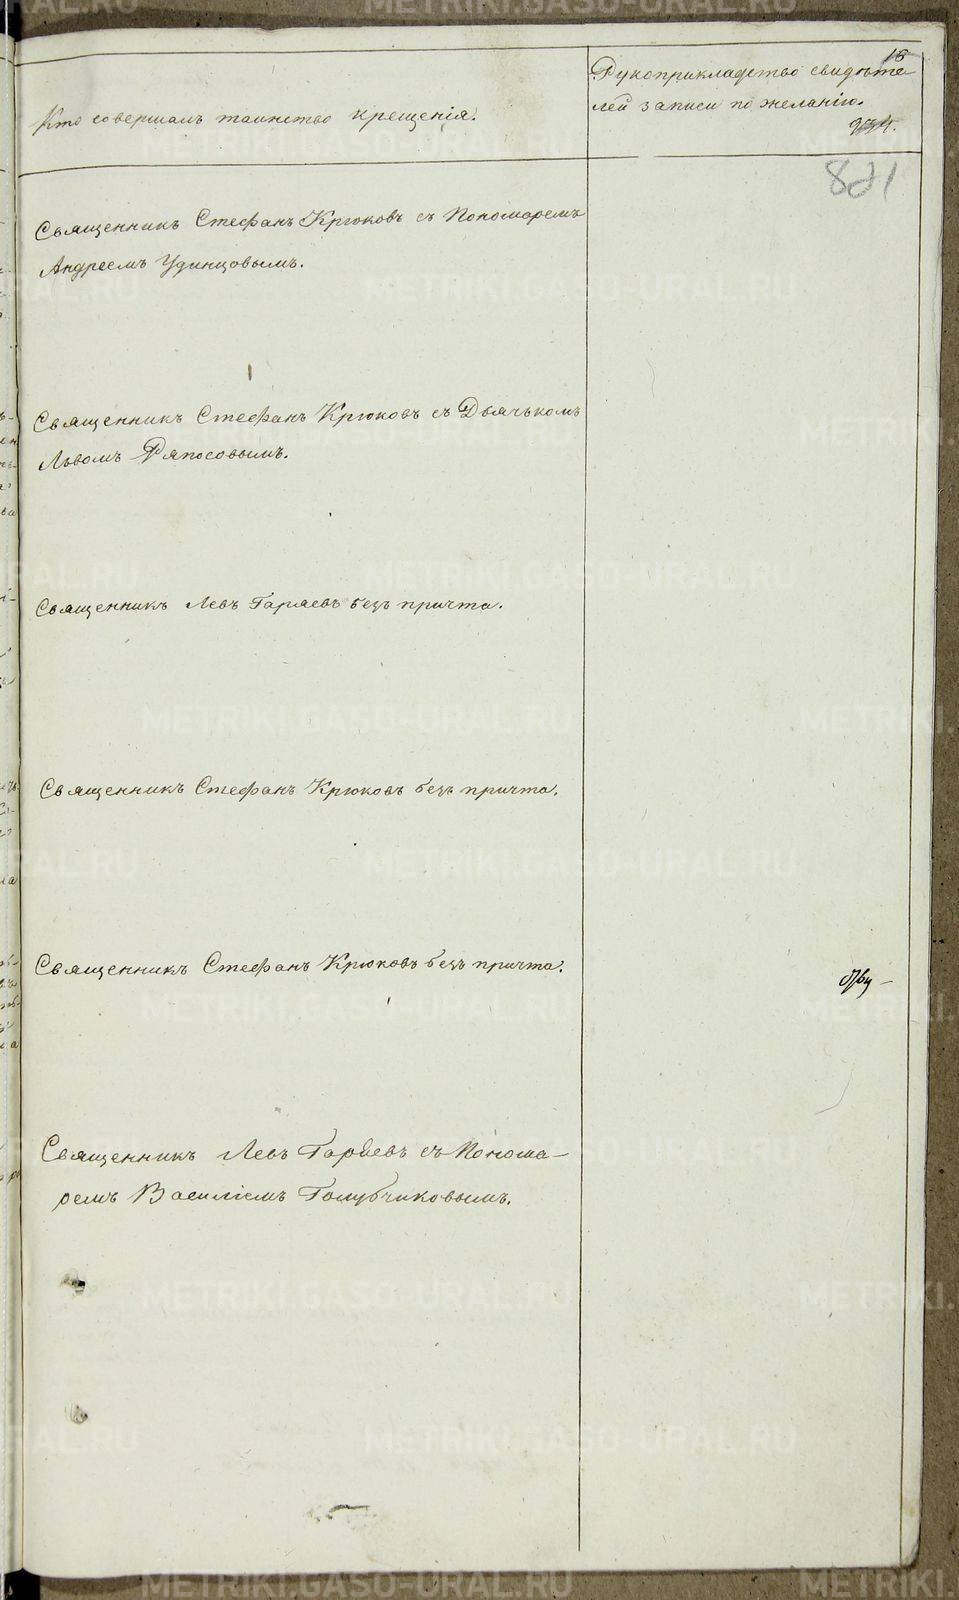 16
Кто совершалъ таинство крещенія.
Рукоприкладство свидѣте
лей записи по желанію.
821
Священникъ Стефанъ Крюковъ съ Пономаремъ
Андреемъ Удинцовымъ.
Священникъ Стефанъ Крюковъ съ Дьячькомъ
Львомъ Ряпосовымъ.
Священникъ Левъ Гаряевъ безъ причта.
Священникъ Стефанъ Крюковъ безъ причта.
Священникъ Стефанъ Крюковъ безъ причта.
Священникъ Левъ Гаряевъ съ Понома-
ремъ Василіемъ Голубчиковымъ.
METRIKI.GASO-URAL.RU